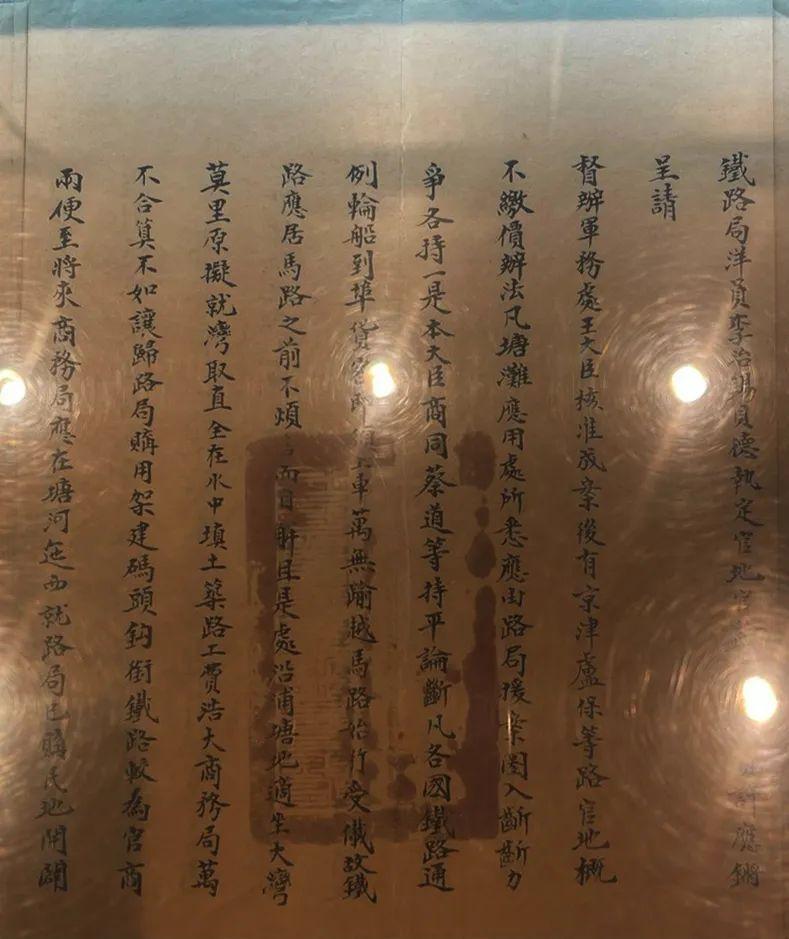 鐵路局洋員李治錫貝德執定官地官許應鏘
呈請
督辦軍務處王大臣核准成案後有京津盧保等路官地概
不繳價辦法凡塘灘應用處所悉應由路局援案圈入斷斷力
爭各持一是本大臣商同蔡道等持平論斷凡各國鐵路通
例輪船到埠貨客即車萬無踰越馬路始行受儎故鐵
路應居馬路之前不煩而目是處沿浦塘地適坐大灣
莫里原擬就灣取直全在水中填土築路工費浩大商務局萬
不合算不如讓歸路局購用架建碼頭鈎銜鐵路較為官商
兩便至將來商務局應在塘河迤西就路局已購民地開闢